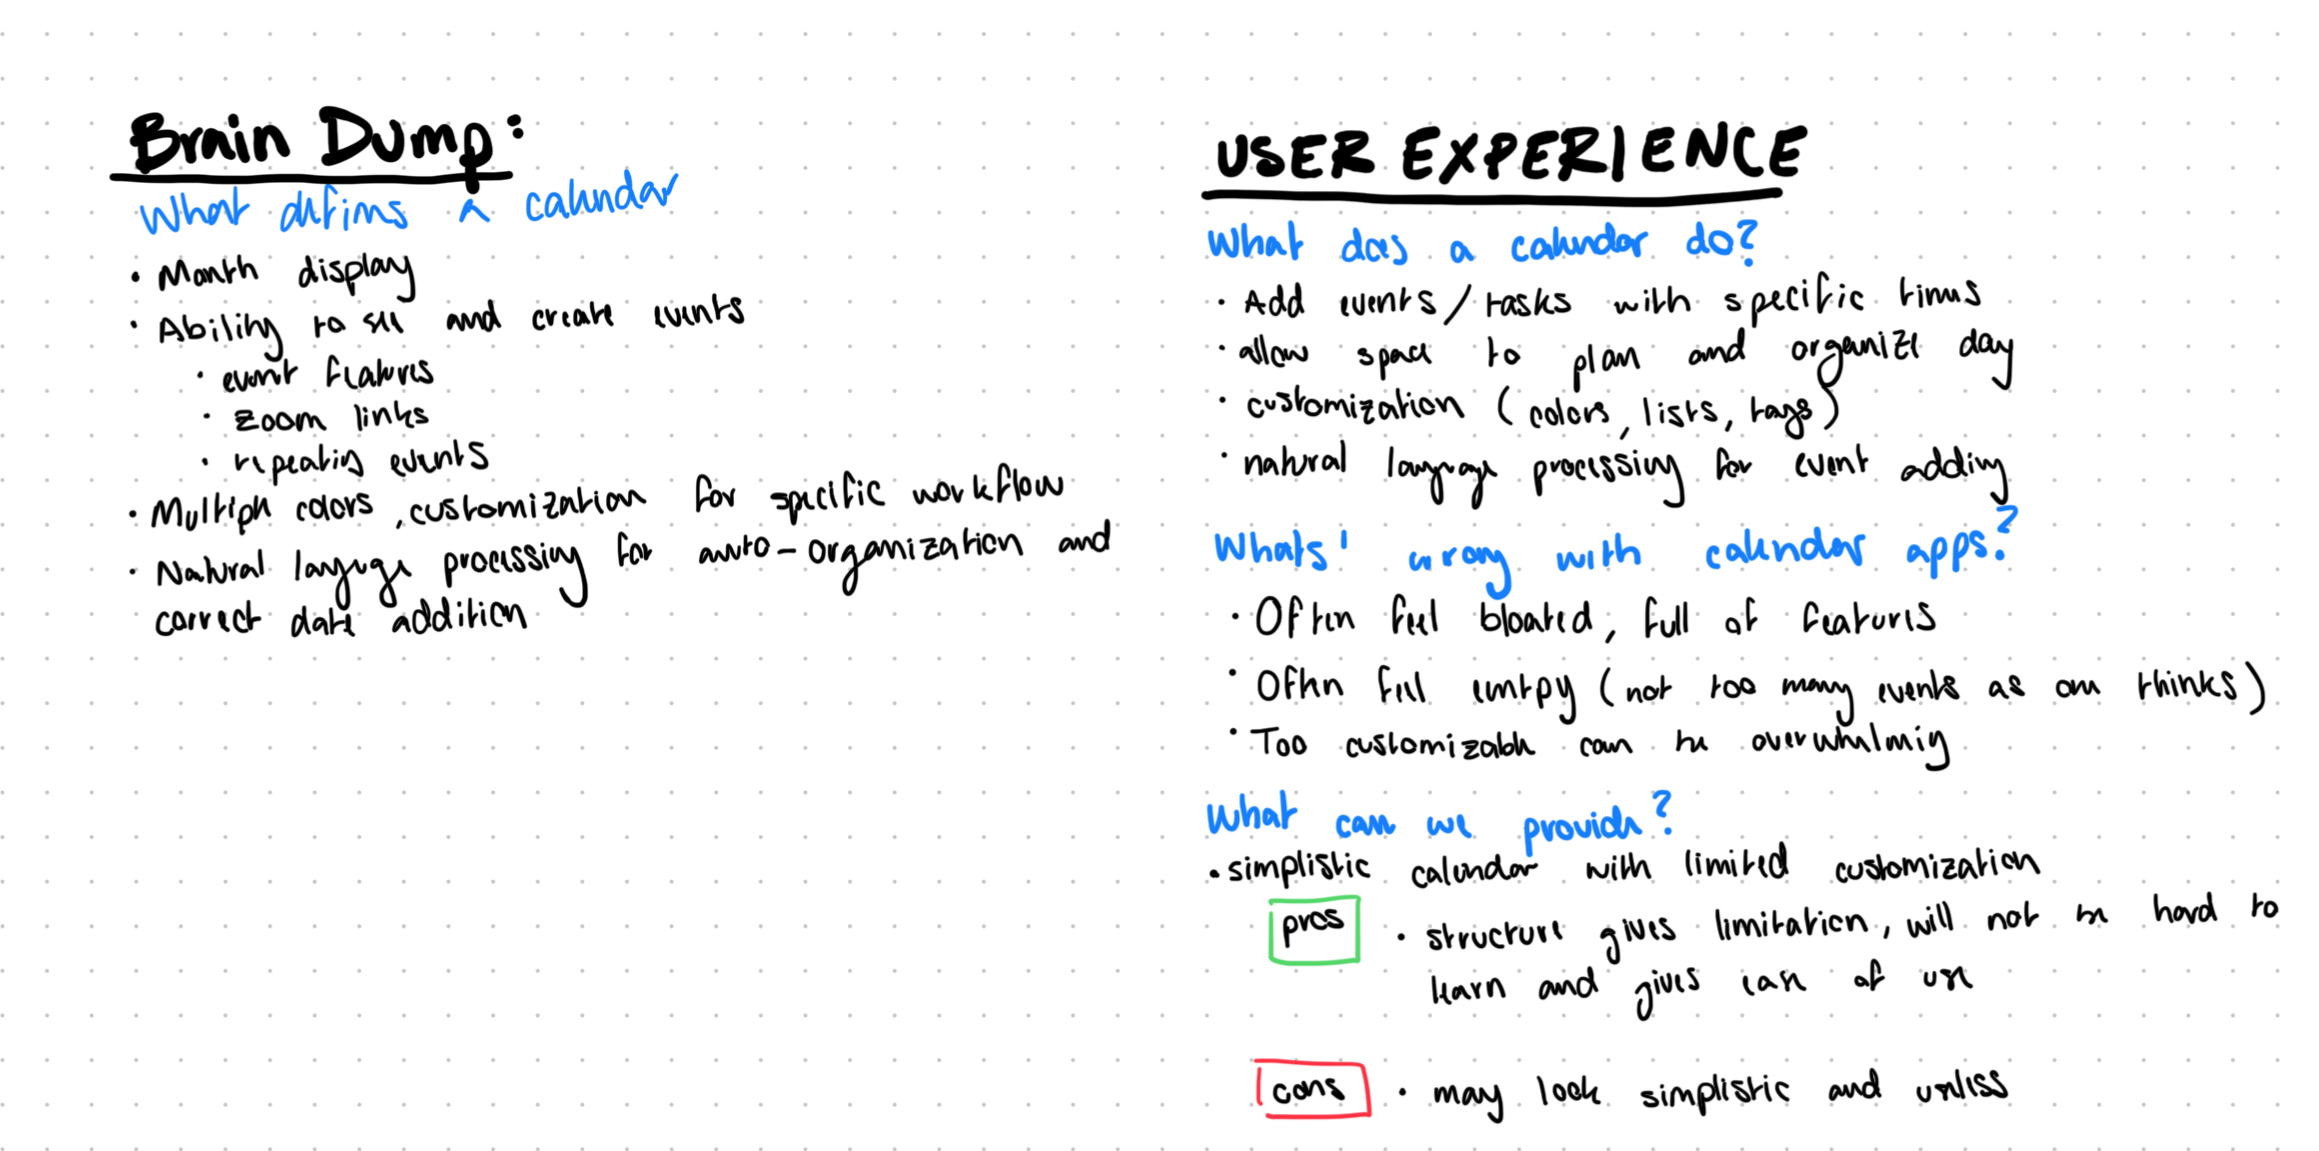 Brain Dump:
What defines a calendar
• Month display
• Ability to see and create events
• event features
• zoom links
• repeating events
• Multiple colors, customization for specific workflow
• Natural language processing for auto-organization and
correct date addition
USER EXPERIENCE
What does a calendar do?
• Add events/tasks with specific times
• allow space to plan and organize day
• customization (colors, lists, tags)
• natural language processing for event adding
Whats' wrong with calendar apps?
• Often feel bloated, full of features
• Often feel emtpy (not too many events as one thinks)
• Too customizable can be overwhelmig
What can we provide?
• simplistic calendar with limited customization
pros • structure gives limitation, will not be hard to
learn and gives ease of use
cons • may look simplistic and useless